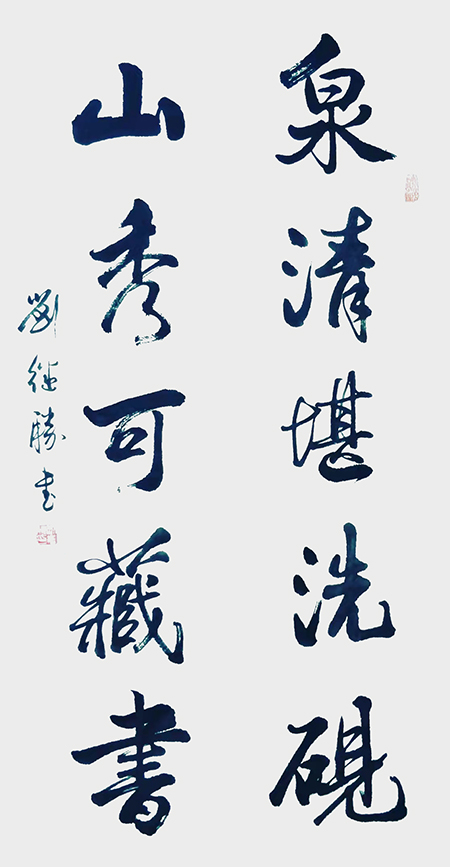 泉清堪洗硯
山秀可藏書
劉继勝书